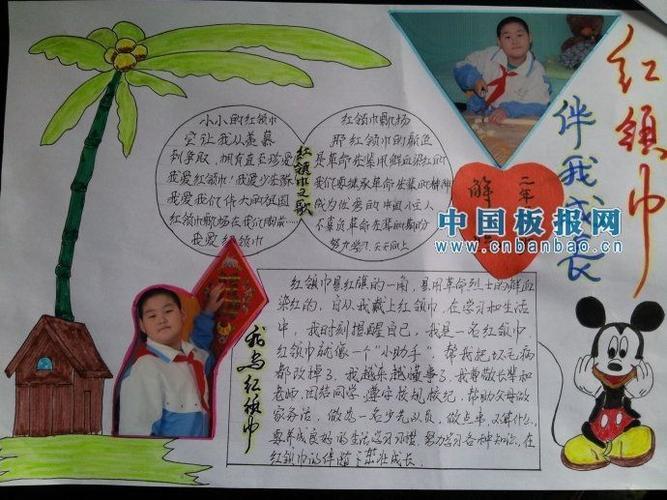 红领巾
伴我成长
小小的红领巾
它让我从羡慕
到争取、拥有直至珍爱
我爱红领巾！我爱少先队
我爱我们伟大的祖国
红领巾飘扬在我们胸前……
我爱红领巾
红领巾之歌
红领巾飘扬
那红领巾的颜色
是革命先辈用鲜血染红的
我们要继承革命先辈的精神
成为优秀的中国小主人
不辜负革命先辈的期望
努力学习、天天向上
二年
解
中国板报网
www.cnbanbao.cn
我与红领巾
红领巾是红旗的一角，是用革命烈士的鲜血
染红的，自从我戴上红领巾，在学习和生活
中，我时刻提醒自己，我是一名红领巾
红领巾就像一个“小助手”，帮我把坏毛病
都改掉了，我越来越懂事了，我尊敬长辈和
老师，团结同学，遵守校规校纪，帮助父母做
家务活，做为一名少先队员，做点事不算什么，
要养成良好的生活学习习惯，努力学习各种知识，在
红领巾的伴随下茁壮成长。